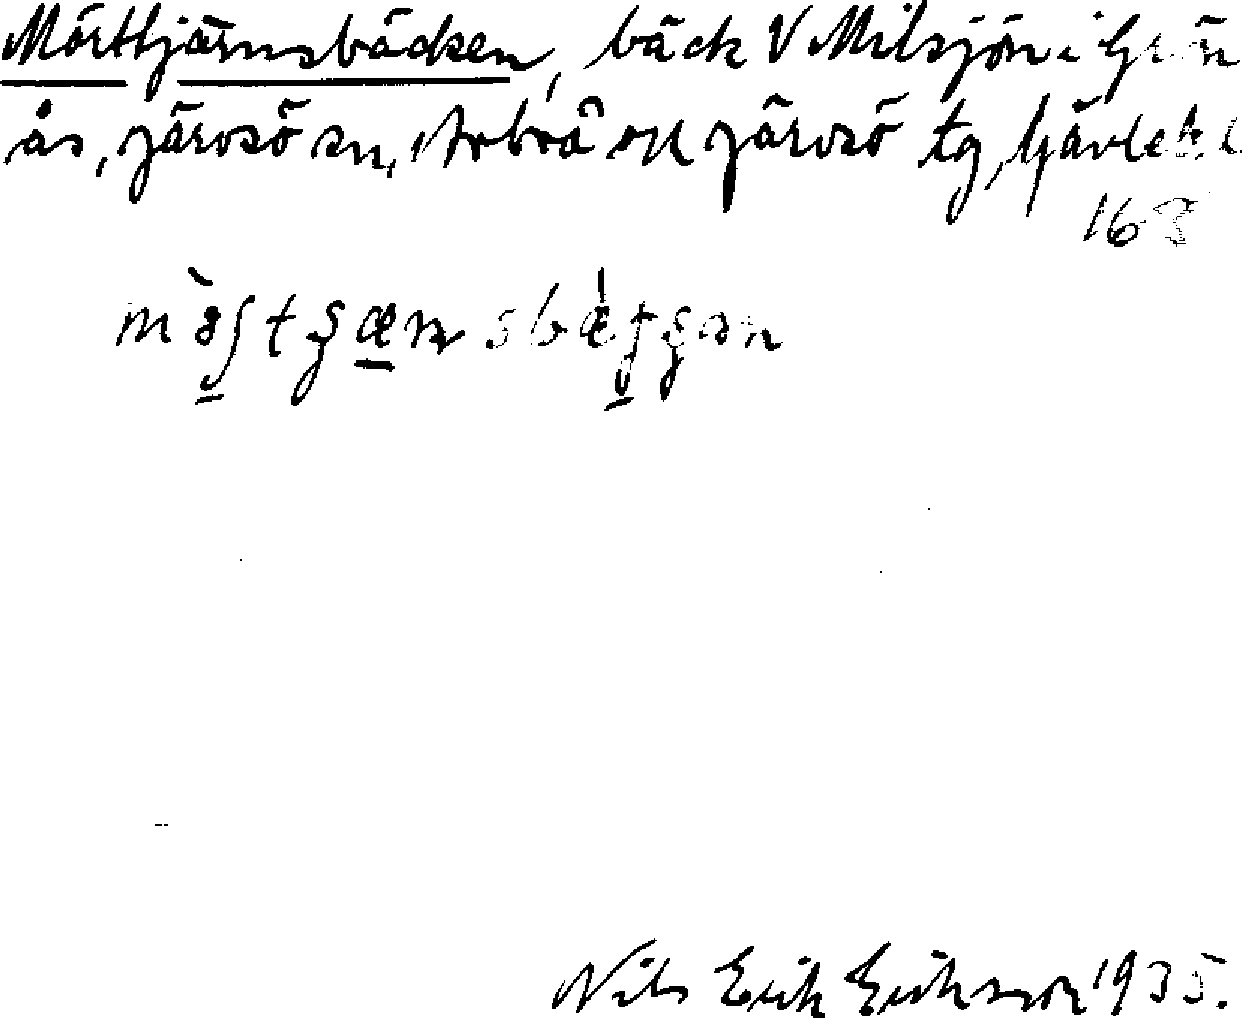 Mörttjärnsbäcken, bäck V Milsjön i Grän
ås, Järvsö sn, Arbrå ock Järvsö tg, Gävlebl
163
Nils Erik Eriksson 1935.